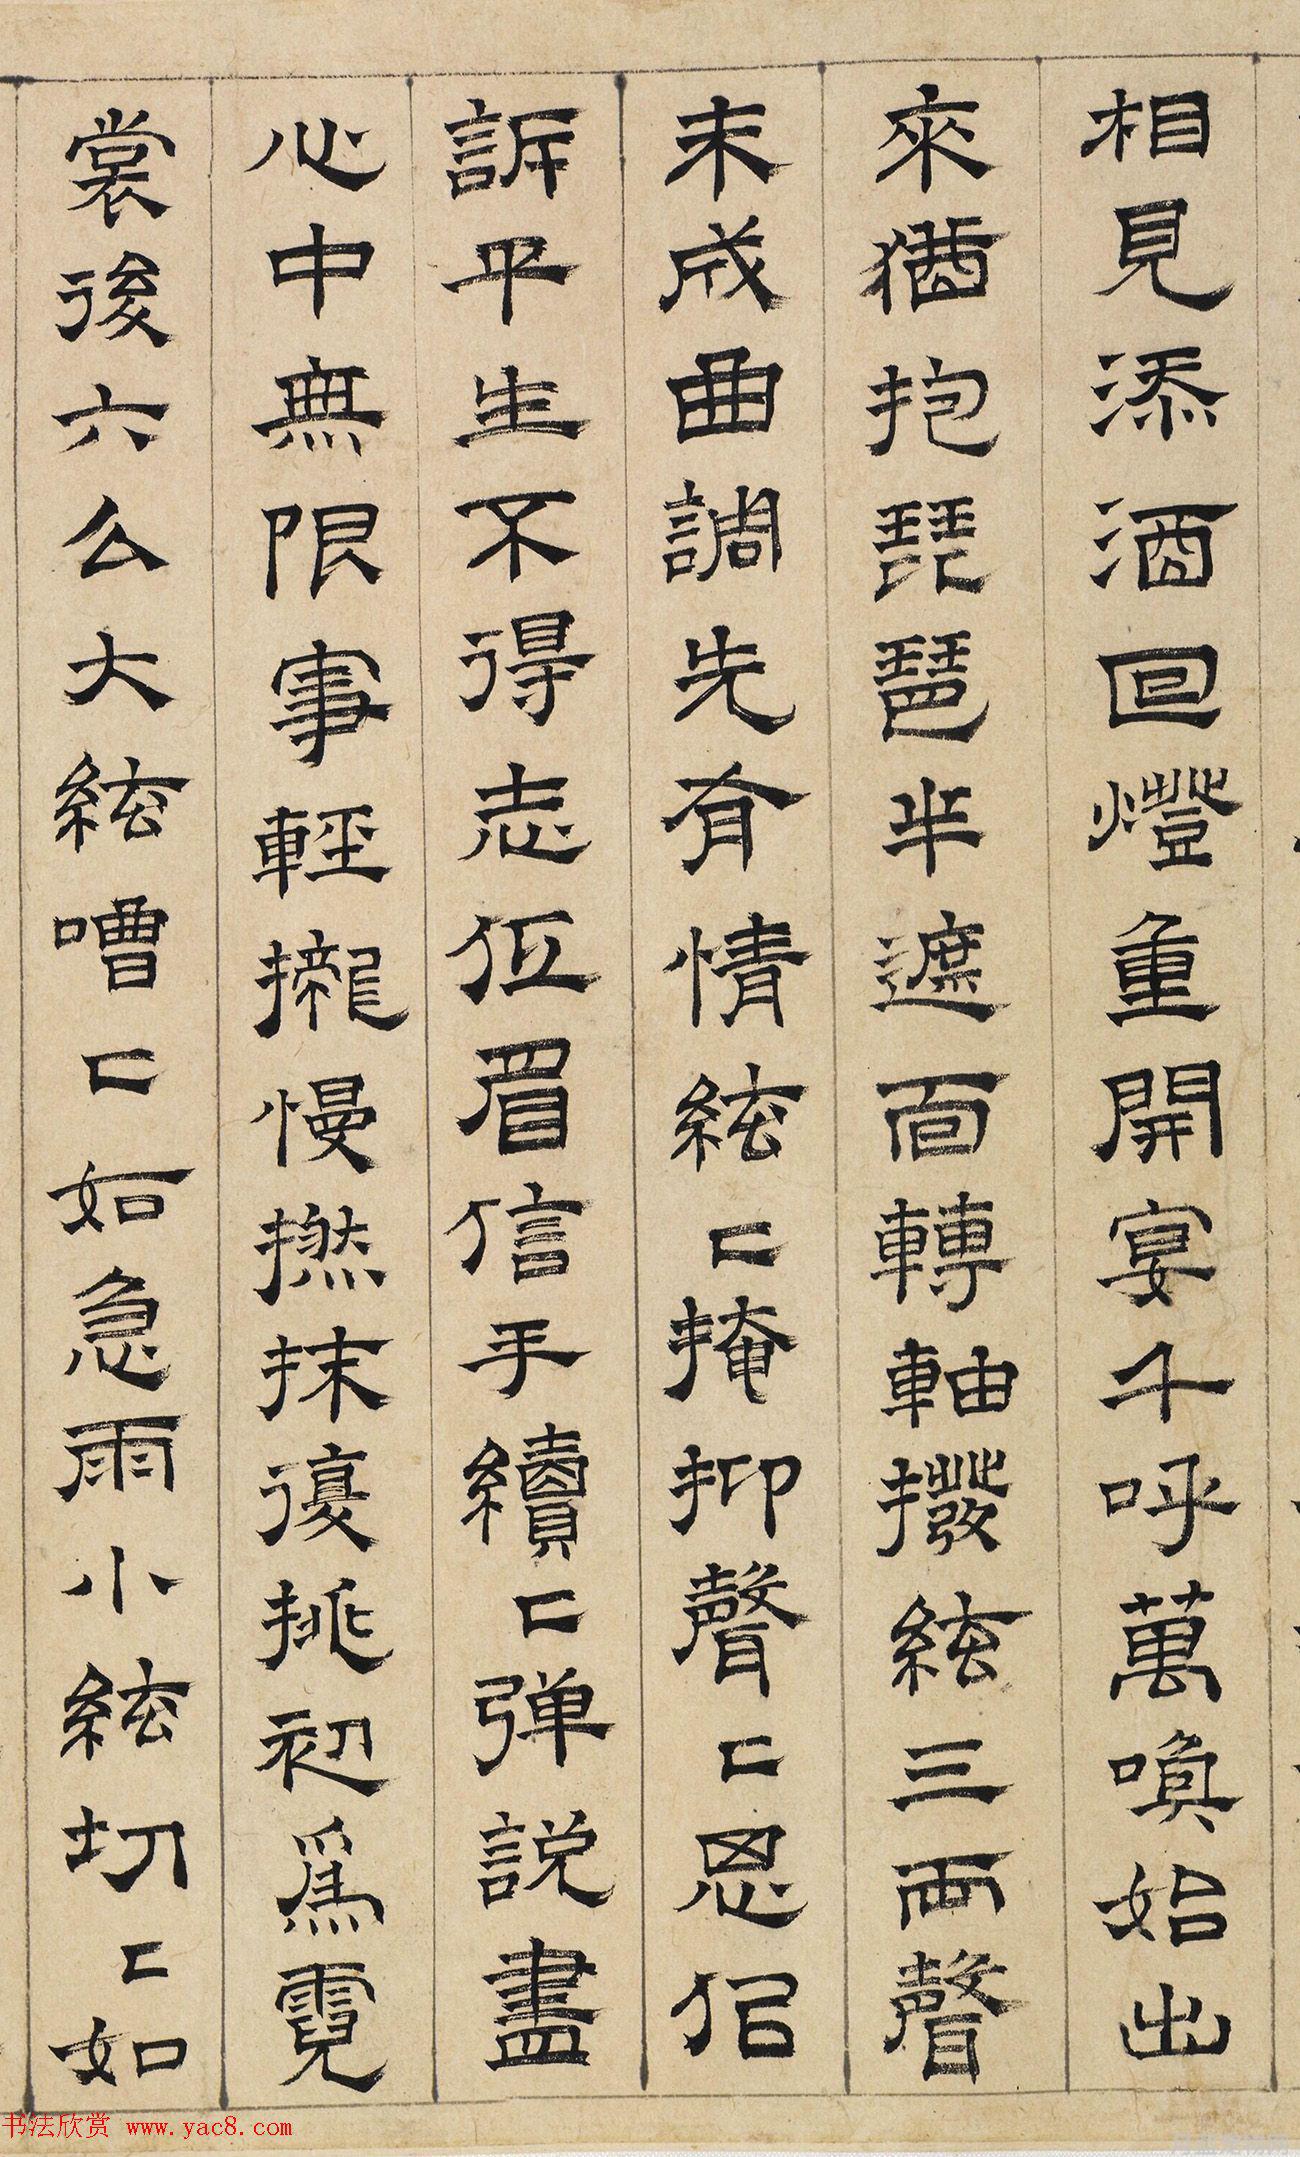 相見添酒回燈重開宴千呼萬喚始出
來猶抱琵琶半遮面轉軸撥絃三兩聲
未成曲調先有情絃〻掩抑聲〻思似
訴平生不得志低眉信手續〻弹説盡
心中無限事輕攏慢撚抹復挑初爲霓
裳後六么大絃嘈〻如急雨小絃切〻如
书法欣赏 www.yac8.com